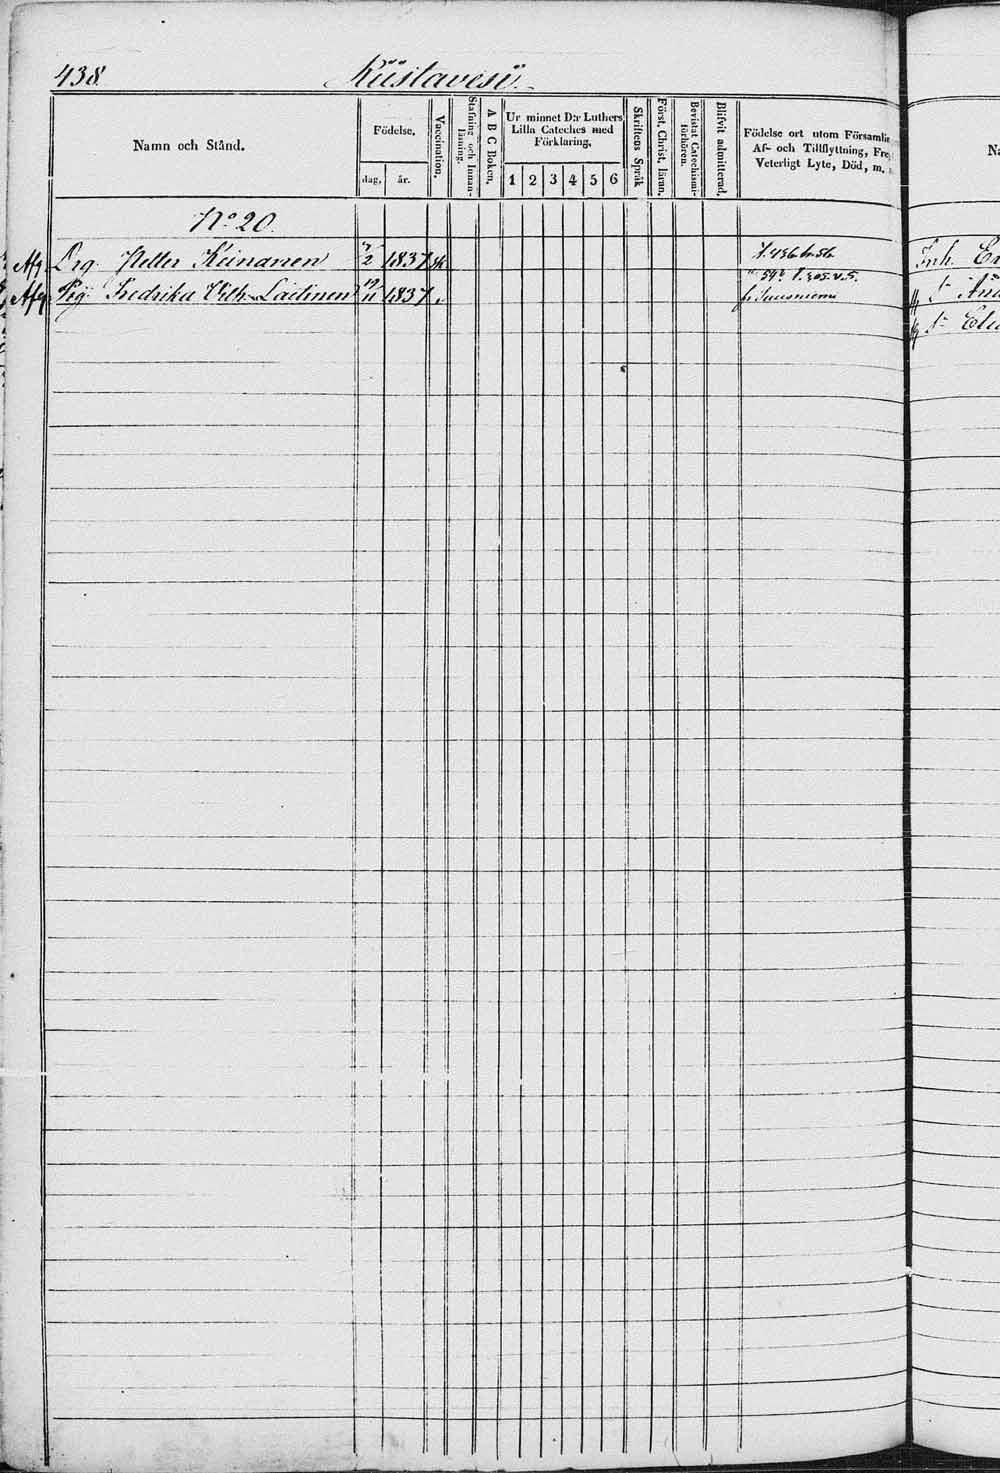 438
Kuuslavesi
Namn och Stånd.
Födelse.
dag.
år.
Vaccination.
Stafning och Innan-
läsning.
A B C Boken.
Ur minnet D:r Luthers
Lilla Cateches med
Förklaring.
1 2 3 4 5 6
Skriftens Språk
Först. Christ. läran.
Bevistat Catechismi-
förhören.
Blifvit admitterad.
Födelse ort utom Församlin
Af- och Tillflyttning, Fre
Veterligt Lyte, Död, m.
Na
No 20.
Drg. Petter Keinanen 2 1837
Pig. Fredrika Vilh. Laitinen 19/11 1837
fr Suusniemi
Inh.